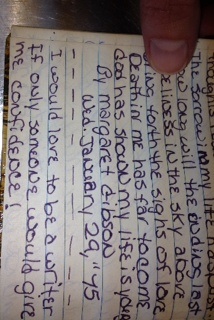 The sorrow in my life
How long will the ending last
liness in the sky above
bring forth the sighs of love
Death in me has far to come
God has shown my life is
By Margaret Gibson
Wed. January 29, "45
I would love to be a writer
If only someone would give
me confidence!